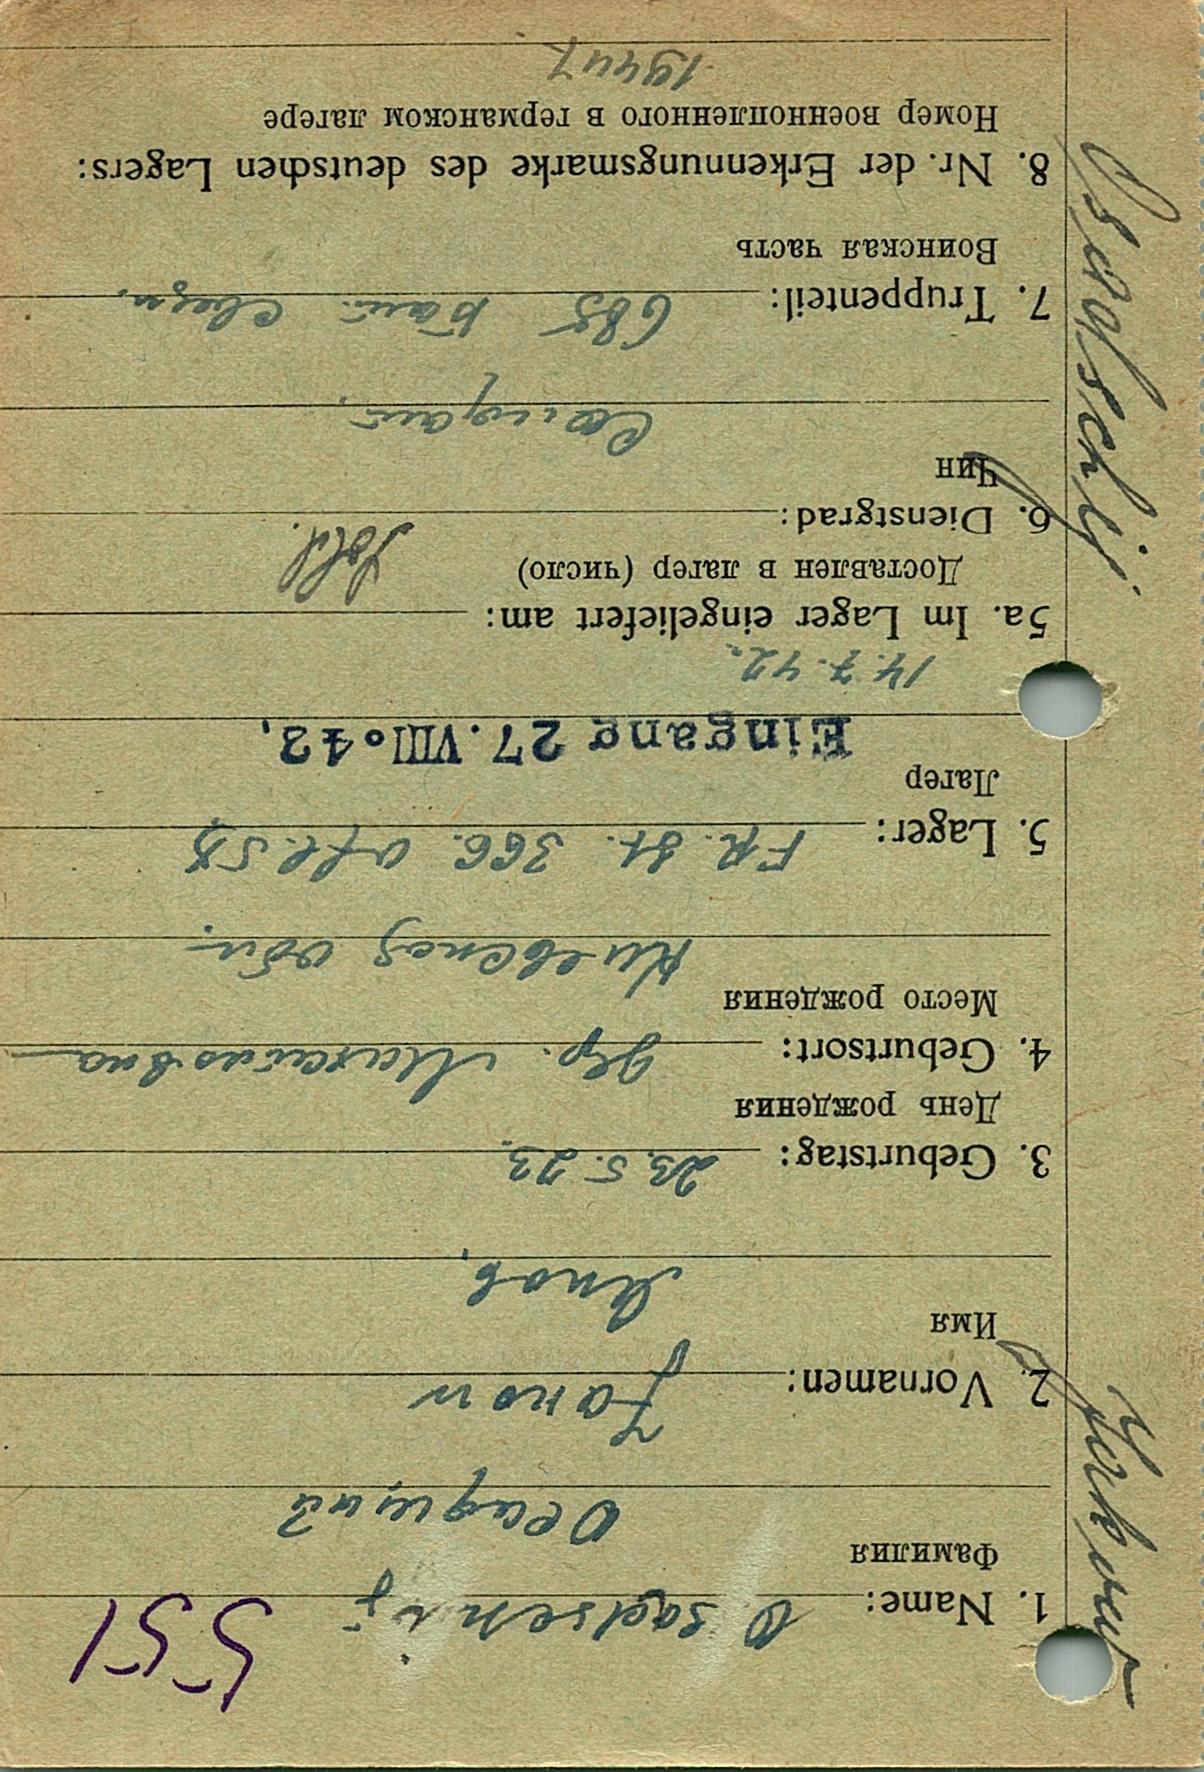 551
1. Name: Osadschij
Фамилия
Осадщий
2. Vornamen: Jakow
Имя
Яков,
3. Geburtstag: 23.5.23.
День рождения
4. Geburtsort: дер.
Место рождения
5. Lager: FR. St. 366.
Лагер
Eingang 27. VIII. 42.
14.7.42.
5a. Im Lager eingeliefert am:
Доставлен в лагер (число)
Sold.
6. Dienstgrad:
Чин
Солдат.
7. Truppenteil: 685 бат. связи.
Воинская часть
8. Nr. der Erkennungsmarke des deutschen Lagers:
Номер военнопленного в германском лагере
19447
Jakow